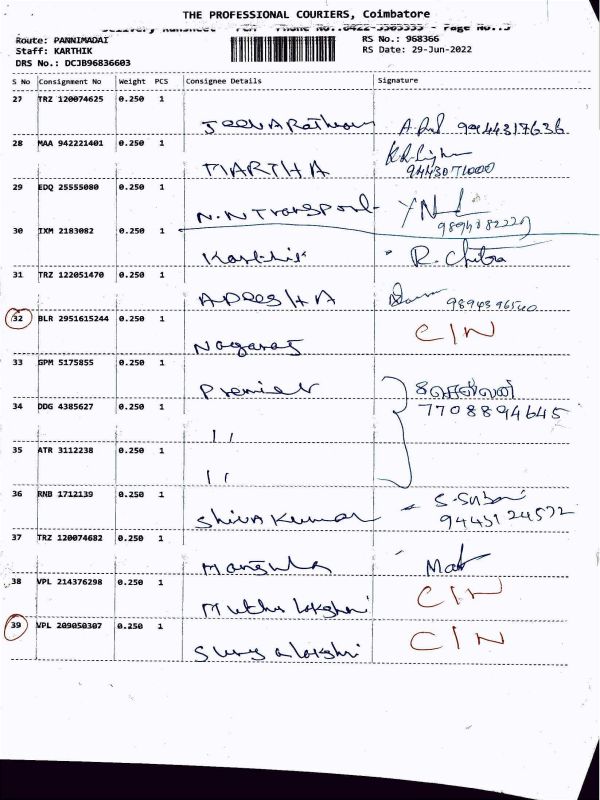 THE PROFESSIONAL COURIERS, Coimbatore
Delivery Runsheet - POA Phone No.:0422- - Page No.:3
Route: PANNIMADAI RS No.: 968366
Staff: KARTHIK RS Date: 29-Jun-2022
DRS No.: DCJB96836603
S No Consignment No Weight PCS Consignee Details Signature
27 TRZ 120074625 0.250 1
JeevA Rathnam 9944317636
28 MAA 942221401 0.250 1
MARTHA 9443071000
29 EDQ 25555080 0.250 1
N.N Transport
30 IXM 2183082 0.250 1
Karthik R. Chitra
31 TRZ 122051470 0.250 1
9894396540
32 BLR 2951615244 0.250 1 C/N
Nagaraj
33 GPM 5175855 0.250 1
Premier
34 DDG 4385627 0.250 1 7708894645
"
35 ATR 3112238 0.250 1
"
36 RNB 1712139 0.250 1
Shiva Kumar
37 TRZ 120074682 0.250 1
Manjula
38 VPL 214376298 0.250 1 C/N
Muthu lakshmi
39 VPL 209050307 0.250 1 C/N
Surya lakshmi